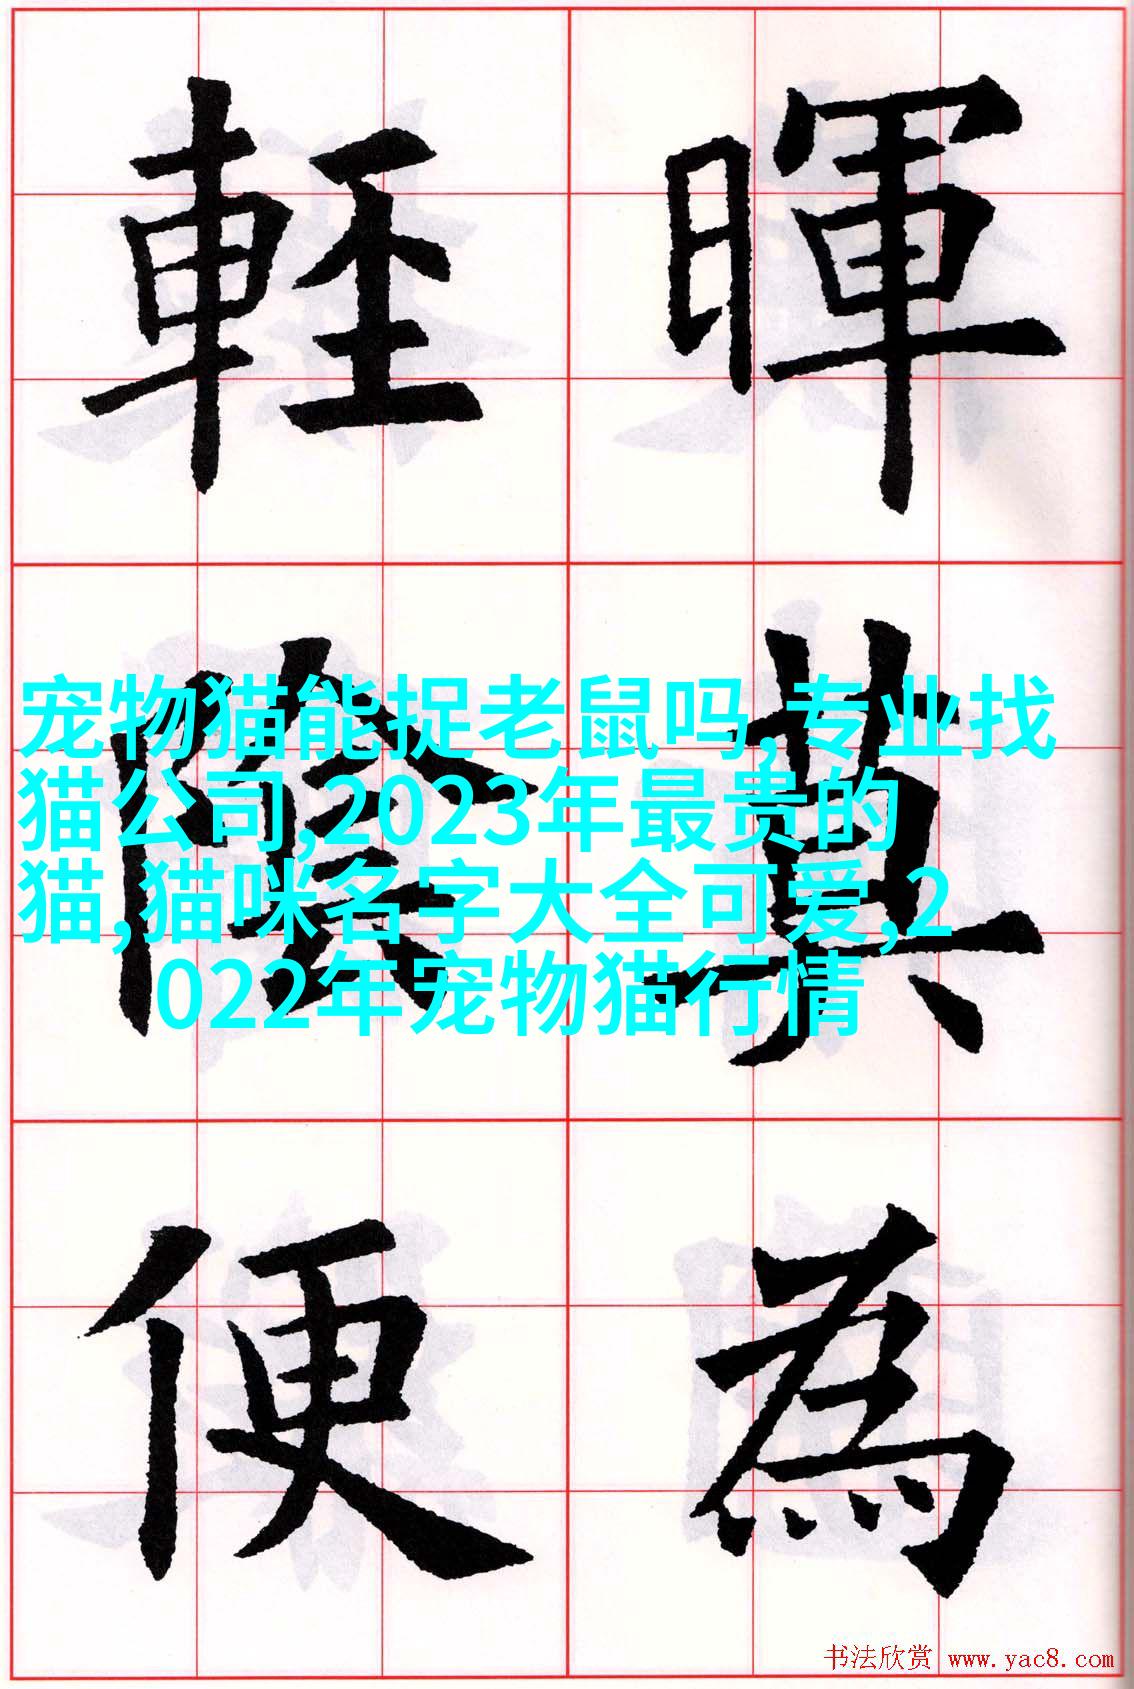 暉莫為
輕陰便
宠物猫能捉老鼠吗,专业找
猫公司,2023年最贵的
猫,猫咪名字大全可爱,2
022年宠物猫行情
书法欣赏 www.yac8.com